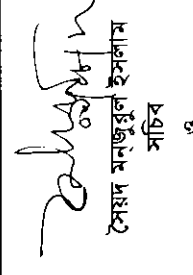 সৈয়দ মন্জুরুল ইসলাম
সচিব
ও